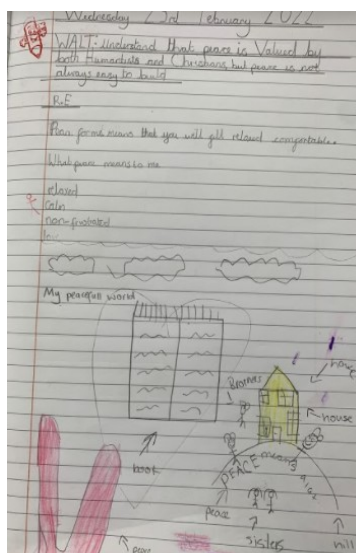 Wednesday 23rd February 2022
WALT: Understand that peace is Valued by
both Humanists and Christians, but peace is not
always easy to build
R.E
means that you will relaxed
What peace means to me
relaxed
Calm
non-frustrated
My peacefull world
house
Brothers
house
book
PEACE means
peace
sisters
hill
peace